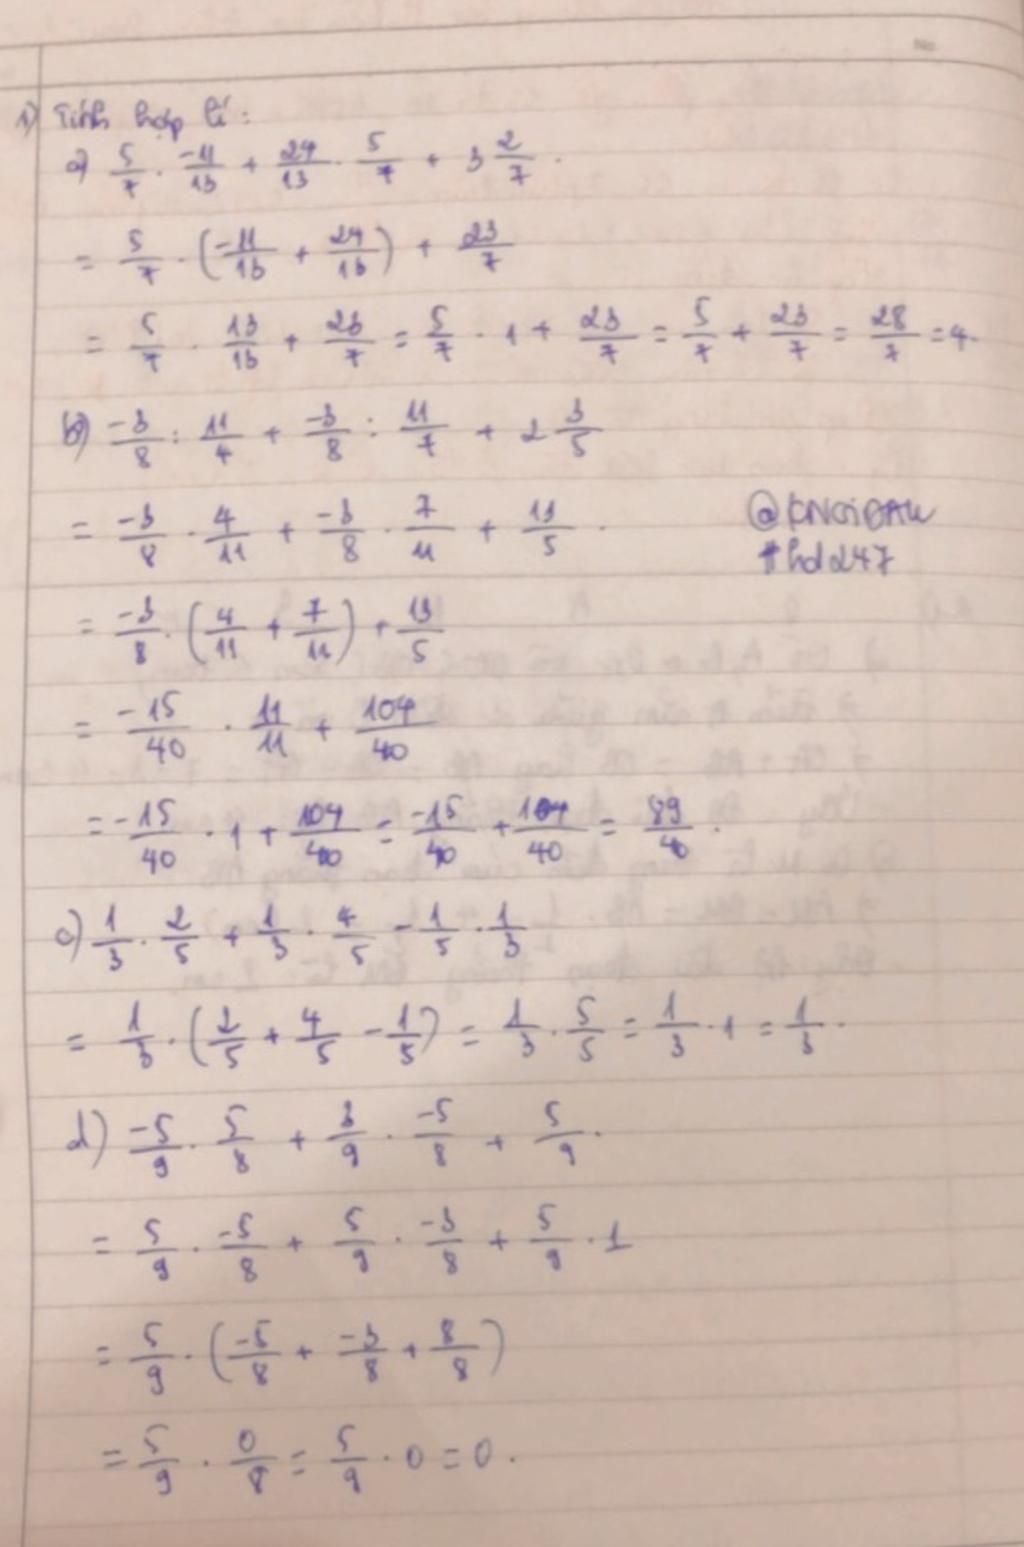 1) Tính hợp lí:
a) 5/7 . -11/13 + 24/13 . 5/7 + 3 2/7 .
= 5/7 . (-11/13 + 24/13) + 23/7
= 5/7 . 13/13 + 23/7 = 5/7 . 1 + 23/7 = 5/7 + 23/7 = 28/7 = 4.
b) -3/8 : 11/4 + -3/8 : 11/7 + 2 3/5
= -3/8 . 4/11 + -3/8 . 7/11 + 13/5 .
= -3/8 . (4/11 + 7/11) + 13/5
= -15/40 . 11/11 + 104/40
= -15/40 . 1 + 104/40 = -15/40 + 104/40 = 89/40 .
hd247
c) 1/3 . 2/5 + 1/3 . 4/5 - 1/5 . 1/3
= 1/3 . (2/5 + 4/5 - 1/5) = 1/3 . 5/5 = 1/3 . 1 = 1/3 .
d) -5/9 . 5/8 + 3/9 . -5/8 + 5/9 .
= 5/9 . -5/8 + 5/9 . -3/8 + 5/9 . 1
= 5/9 . (-5/8 + -3/8 + 8/8)
= 5/9 . 0/8 = 5/9 . 0 = 0 .